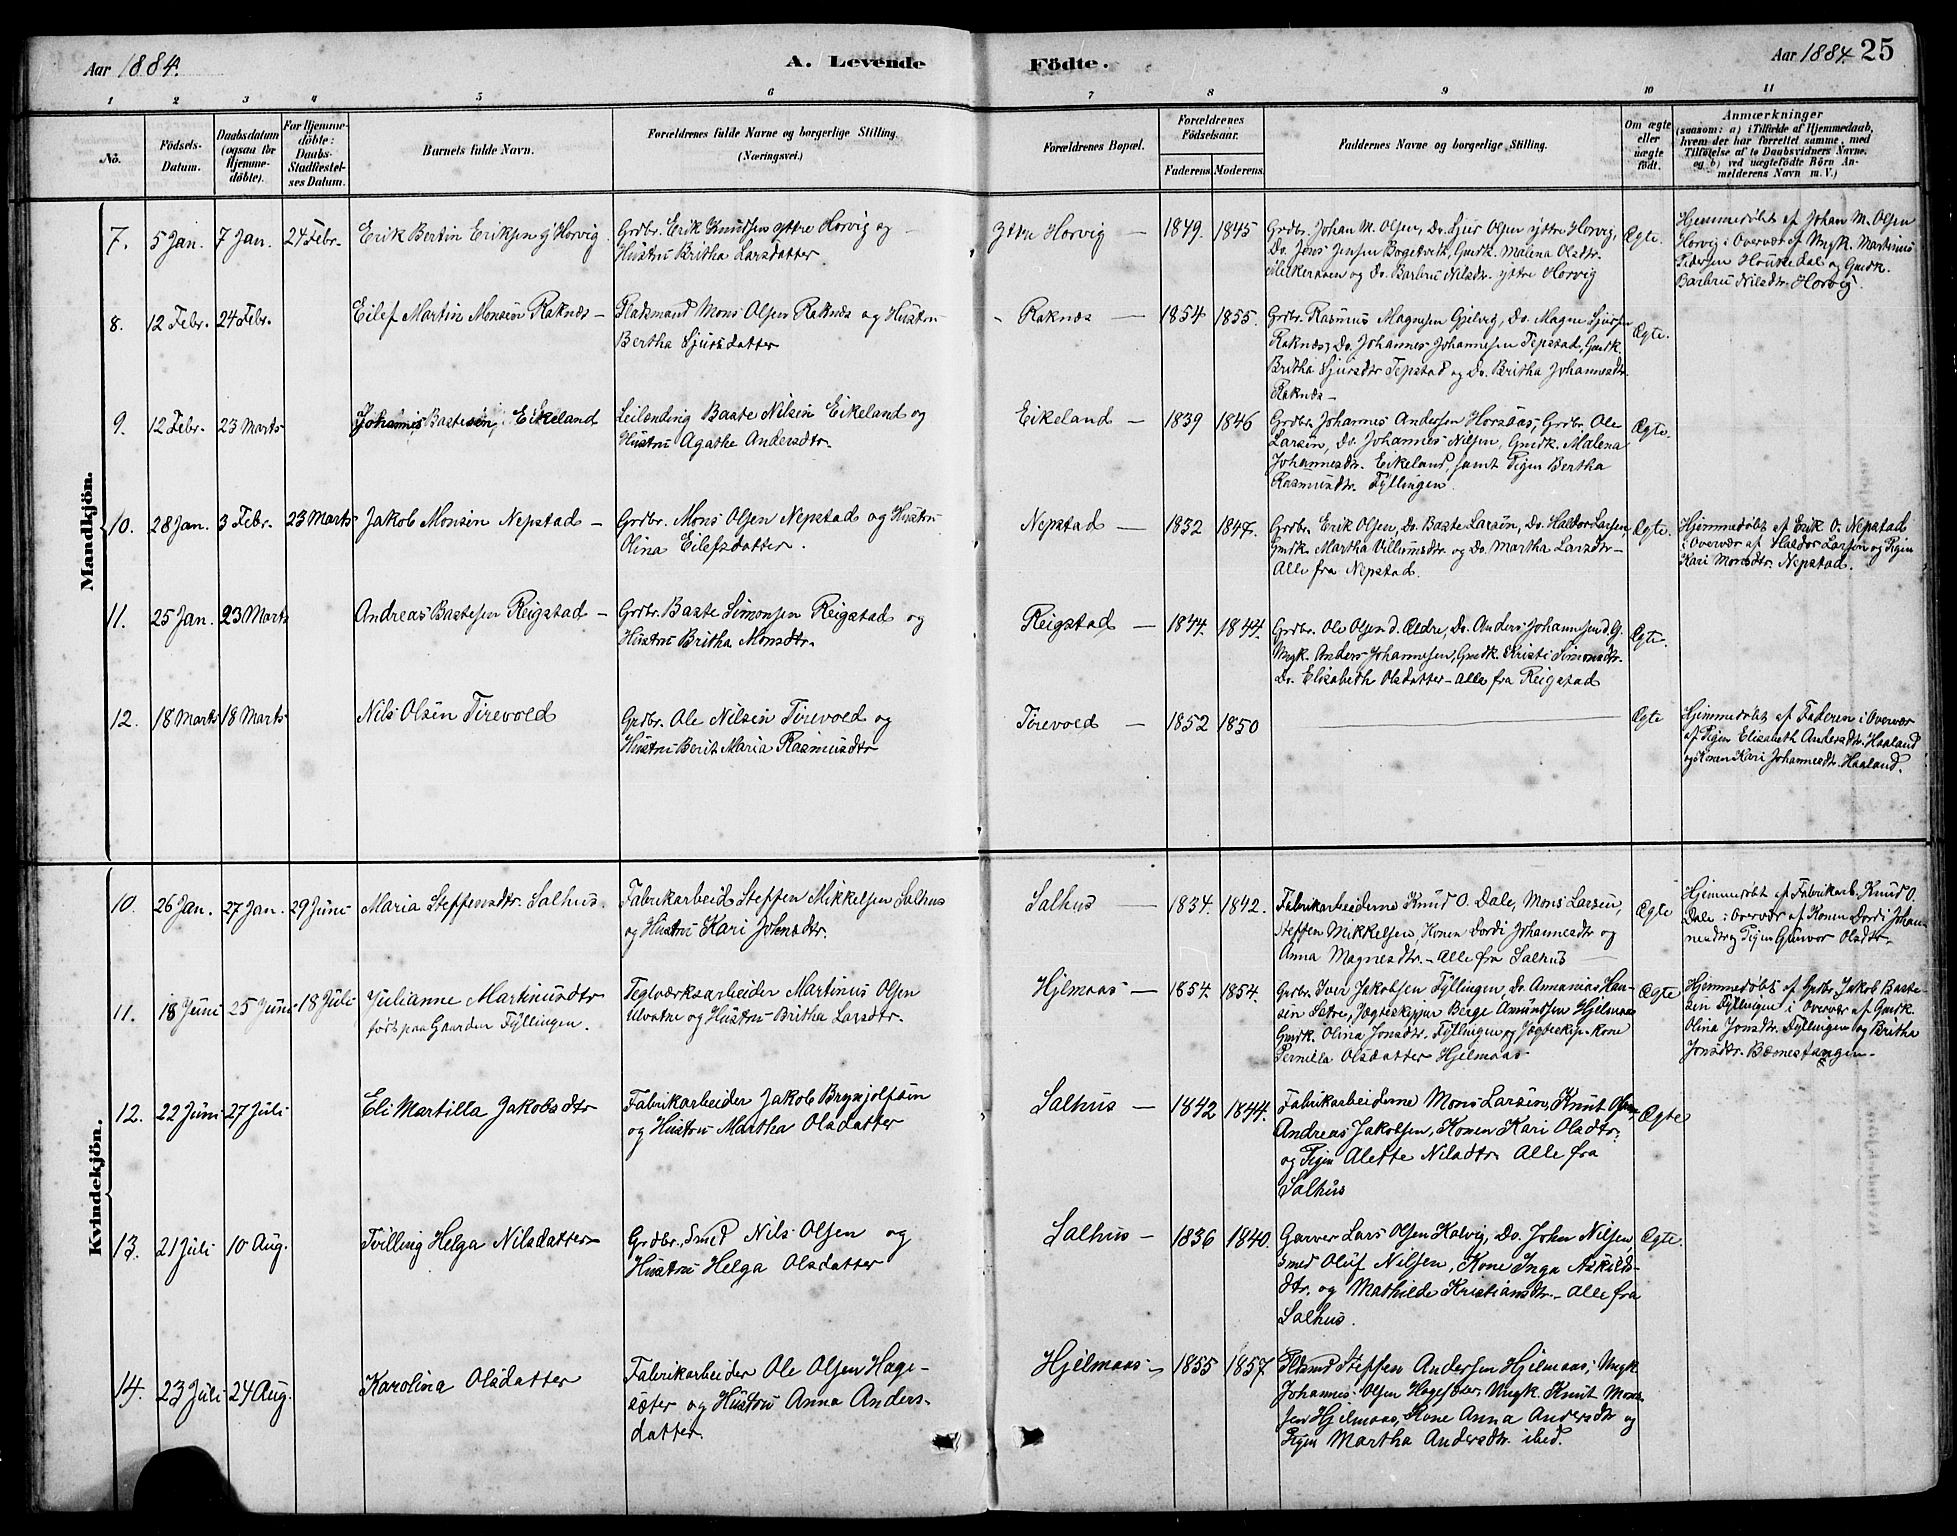 Aar 1884.
A. Levende
Födte.
Aar 1884
25
1 2 3 4 5 6 7 8 9 10 11
No.
Födsels-
Datum.
Daabsdatum
(ogsaa for
Hjemme-
döbte).
For Hjemme-
döbte:
Daabs-
Stadfæstel-
ses Datum.
Barnets fulde Navn.
Forældrenes fulde Navne og borgerlige Stilling.
(Næringsvei.)
Forældrenes Bopæl.
Forældrenes
Födselsaar.
Faderens. Moderens.
Faddernes Navne og borgerlige Stilling.
Om ægte
eller
uægte
födt.
Anmærkninger
(saasom: a) i Tilfælde af Hjemmedaab,
hvem der har forrettet samme, med
Tilföielse af to Daabsvidners Navne,
og b) ved uægtefödte Börn An-
melderens Navn m. V.)
Mandkjön.
7. 5 Jan. 7 Jan. 24 Febr. Erik Bertin Eriksen Horvig
Grdbr. Erik Knudsen yttre Horvig og
Hustru Britha Larsdatter
Ytre Horvig — 1849. 1845
Grdbr. Johan M. Olsen, Do. Sjur Olsen yttre Horvig,
Do. Jens Jensen Bogetveth, Gmdk. Malena Olsdtr.
og Do. Barbru Nilsdtr. yttre Horvig
Ægte.
Hjemmedøbt af Johan M. Olsen
Horvig i Overvær af Ungk. Martinus
Pedersen og Gmdk.
Barbru Nilsdtr. Horvig.
8. 12 Febr. 24 Febr. Eilef Martin Monsen Raknæs —
Pladsmand Mons Olsen Raknæs og Hustru
Bertha Sjursdatter
Raknæs — 1854 1855.
Grdbr. Rasmus Magnesen Gjelvig, Do. Magne Sjursen
Raknæs, Do. Johannes Johannesen Tepstad, Gmdk.
Britha Sjursdtr Tepstad og Do. Britha Johannesdtr.
Raknæs —
Ægte.
9. 12 Febr. 23 Marts Johannes Bastesen, Eikeland
Leilending Baste Nilsen Eikeland og
Hustru Agathe Andersdtr.
Eikeland — 1839 1846
Grdbr. Johannes Andersen Horsaas, Grdbr. Ole
Larsen, Do. Johannes Nilsen, Gmdk. Malena
Johannesdtr. Eikeland, samt Pigen Bertha
Rasmusdtr. Fyllingen.
Ægte.
10. 28 Jan. 3 Febr. 23 Marts Jakob Monsen Nepstad —
Grdbr. Mons Olsen Nepstad og Hustru
Olina Eilefsdatter.
Nepstad — 1832 1847.
Grdbr. Erik Olsen, Do. Baste Larsen, Do. Haldor Larsen,
Gmdk. Martha Villumsdtr. og Do. Martha Larsdtr —
Alle fra Nepstad.
Ægte.
Hjemmedøbt af Erik O. Nepstad
i Overvær af Haldor Larsen og Pigen
Kari Monsdtr. Nepstad.
11. 25 Jan. 23 Marts Andreas Bastesen Reigstad —
Grdbr. Baste Simonsen Reigstad og
Hustru Britha Monsdtr.
Reigstad — 1844. 1844.
Grdbr. Ole Olsen d. Ældre, Do. Anders Johannesen d. G.
Ungk. Anders Johannesen, Gmdk. Kristi Simonsdtr.
Do. Elisabeth Olsdatter — alle fra Reigstad
Ægte.
12. 18 Marts 18 Marts Nils Olsen Tirevold
Grdbr. Ole Nilsen Tirevold og
Hustru Berit Maria Rasmusdtr
Tirevold — 1852 1850
Ægte
Hjemmedøbt af Faderen i Overvær
af Pigen Elisabeth Andersdtr. Haaland
og Konen Kari Johannesdtr. Haaland.
Kvindekjön.
10. 26 Jan. 27 Jan. 29 Juni Maria Steffensdtr. Salhus.
Fabrikarbeid. Steffen Mikkelsen Salhus
og Hustru Kari Johnsdtr.
Salhus — 1834. 1842.
Fabrikarbeiderne Knud O. Dale, Mons Larsen,
Steffen Mikkelsen, Konen Dordi Johannesdtr og
Anna Magnesdtr. — Alle fra Salhus —
Ægte
Hjemmedøbt af Fabrikarb. Knud O.
Dale i Overvær af Konen Dordi Johan-
nesdtr og Pigen Gunvor Olsdtr.
11. 18 Juni 25 Juni 18 Juli Julianne Martinusdtr
født paa Gaarden Fyllingen.
Teglværksarbeider Martinus Olsen
Ulvatne og Hustru Britha Larsdtr.
Hjelmaas — 1854. 1854.
Grdbr. Iver Jakobsen Fyllingen Do. Annanias Han-
sen Sætre, Jægteskipper Berge Amundsen Hjelmaas
Gmdk. Olina Jonsdtr. Fyllingen og Jægteskp. kone
Pernilla Olsdatter Hjelmaas
Ægte
Hjemmedøbt af Grdbr. Jakob Baste-
sen Fyllingen i Overvær af Gmdk.
Olina Jonsdtr. Fyllingen og Britha
Jonsdtr. Bæmestangen.
12. 22 Juni 27 Juli Eli Martilla Jakobsdtr
Fabrikarbeider Jakob Brynjolfsen
og Hustru Martha Olsdatter
Salhus — 1842 1844.
Fabrikarbeiderne Mons Larsen, Knut Olsen
Andreas Jakobsen, Konen Kari Olsdtr.
og Pigen Alette Nilsdtr. Alle fra
Salhus
Ægte
13. 21 Juli 10 Aug. Tvilling Helga Nilsdatter
Grdbr. Smed Nils Olsen og
Hustru Helga Olsdatter
Salhus — 1836 1840.
Garver Lars Olsen Kalvig, Do. John Nilsen,
smed Oluf Nilsen, Kone Inga Askilds-
dtr. og Mathilde Kristiansdtr. — alle fra
Salhus.
Ægte.
14. 23 Juli 24 Aug. Karolina Olsdatter
Fabrikarbeider Ole Olsen Hage-
sæter og Hustru Anna Anders-
datter.
Hjelmaas — 1855 1857.
Steffen Andersen Hjelmaas, Ungk.
Johannes Olsen Hagesæter, Ungk. Knut Mon-
sen Hjelmaas, Kone Anna Andersdtr og
Pigen Martha Andersdtr. ibid.